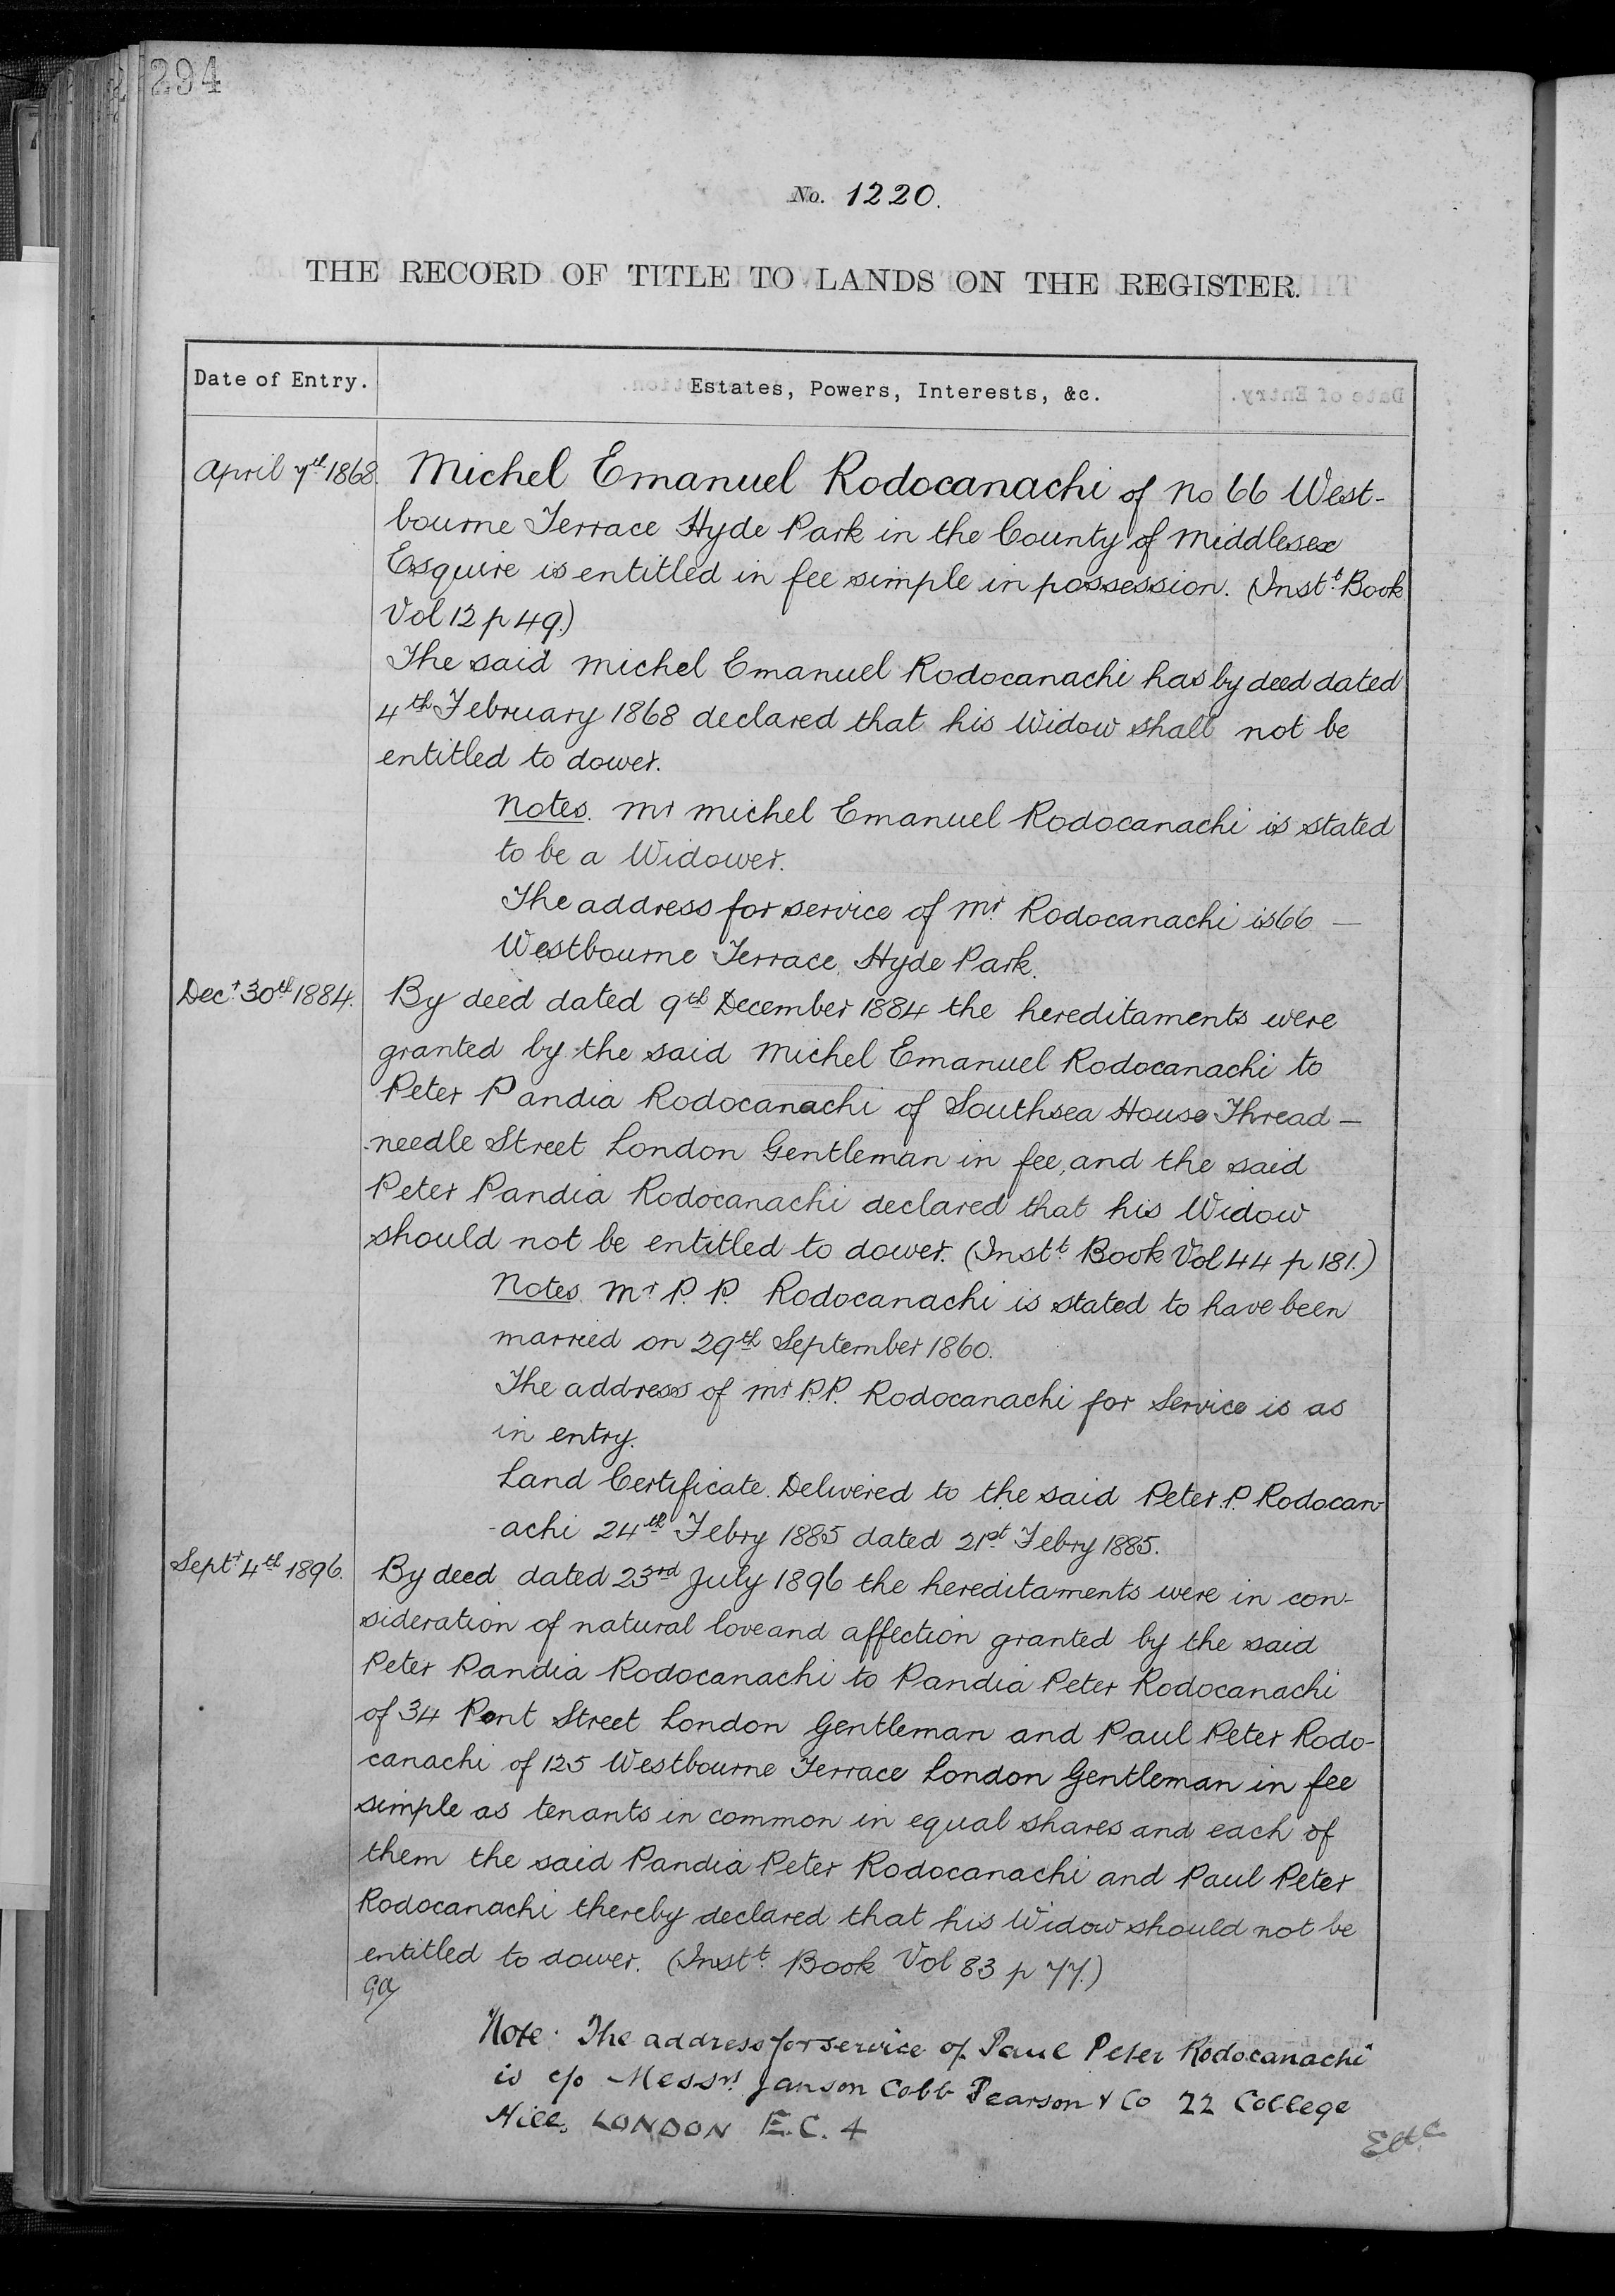 294
No. 1220.
THE RECORD OF TITLE TO LANDS ON THE REGISTER.
Date of Entry.
Estates, Powers, Interests, &c.
April 7th 1868.
Michel Emanuel Rodocanachi of no 66 West-
bourne Terrace Hyde Park in the County of Middlesex
Esquire is entitled in fee simple in possession. (Instt. Book
Vol 12 p 49.)
The said Michel Emanuel Rodocanachi has by deed dated
4th February 1868 declared that his Widow shall not be
entitled to dower.
Notes. Mr Michel Emanuel Rodocanachi is stated
to be a Widower.
The address for service of Mr. Rodocanachi is 66 —
Westbourne Terrace, Hyde Park.
Decr. 30th 1884.
By deed dated 9th December 1884 the hereditaments were
granted by the said Michel Emanuel Rodocanachi to
Peter Pandia Rodocanachi of Southsea House Thread —
-needle Street London Gentleman in fee, and the said
Peter Pandia Rodocanachi declared that his Widow
should not be entitled to dower. (Instt. Book Vol 44 p 181.)
Notes. Mr P. P. Rodocanachi is stated to have been
married on 29th September 1860.
The address of Mr P.P. Rodocanachi for Service is as
in entry.
Land Certificate. Delivered to the said Peter. P. Rodocan-
-achi 24th Febry 1885 dated 21st Febry 1885.
Septr 4th 1896.
By deed dated 23rd July 1896 the hereditaments were in con-
sideration of natural love and affection granted by the said
Peter Pandia Rodocanachi to Pandia Peter Rodocanachi
of 34 Pont Street London Gentleman and Paul Peter Rodo-
canachi of 125 Westbourne Terrace London Gentleman in fee
simple as tenants in common in equal shares and each of
them the said Pandia Peter Rodocanachi and Paul Peter
Rodocanachi thereby declared that his Widow should not be
entitled to dower. (Instt. Book Vol 83 p 77.)
Note. The address for service of Paul Peter Rodocanachi
is c/o Messrs. Janson Cobb Pearson & Co 22 College
Hill, LONDON E.C. 4